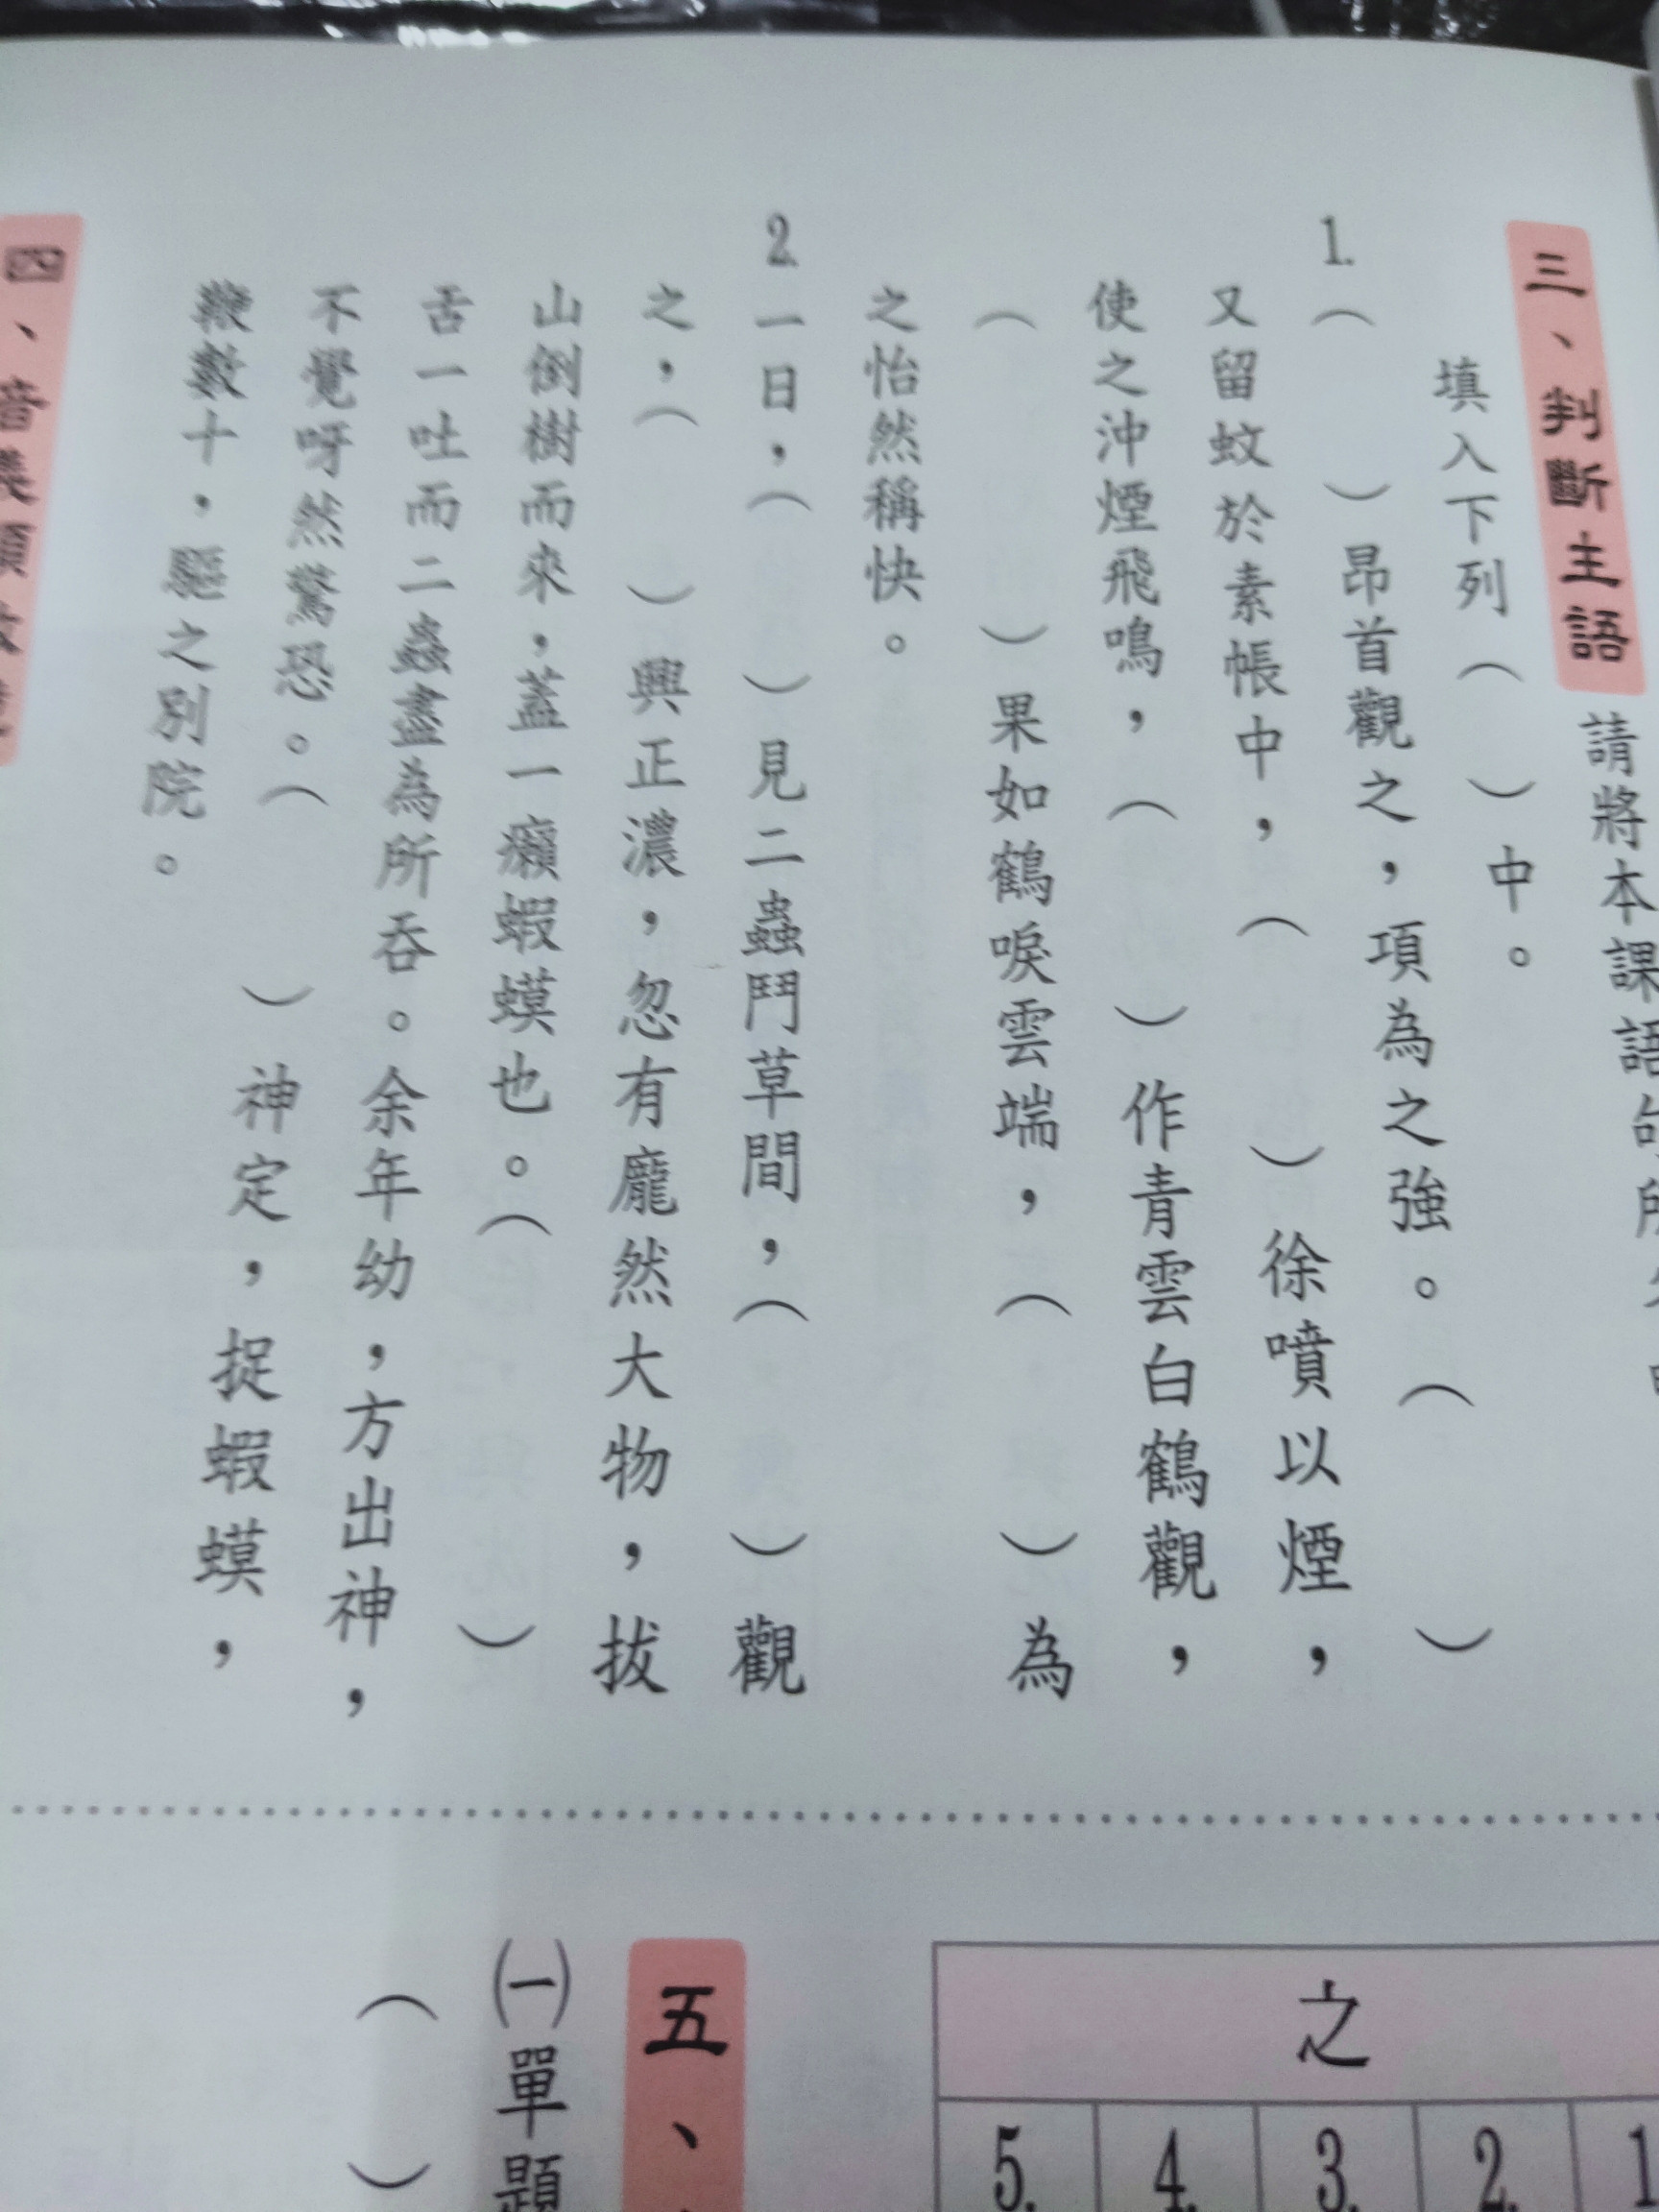 三、判斷主語 請將本課語句所
填入下列（　）中。
1.（　）昂首觀之，項為之強。（　）
又留蚊於素帳中，（　）徐噴以煙，
使之沖煙飛鳴，（　）作青雲白鶴觀，
（　）果如鶴唳雲端，（　）為
之怡然稱快。
2.一日，（　）見二蟲鬥草間，（　）觀
之，（　）興正濃，忽有龐然大物，拔
山倒樹而來，蓋一癩蝦蟆也。（　）
舌一吐而二蟲盡為所吞。余年幼，方出神，
不覺呀然驚恐。（　）神定，捉蝦蟆，
鞭數十，驅之別院。
四、音義
之
1
2.
3.
4.
5.
五、
㈠單題
（　）